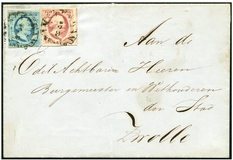 Aan de
Odel Achtbaren Heeren
Burgemeester en Wethouderen
der Stad
Zwolle